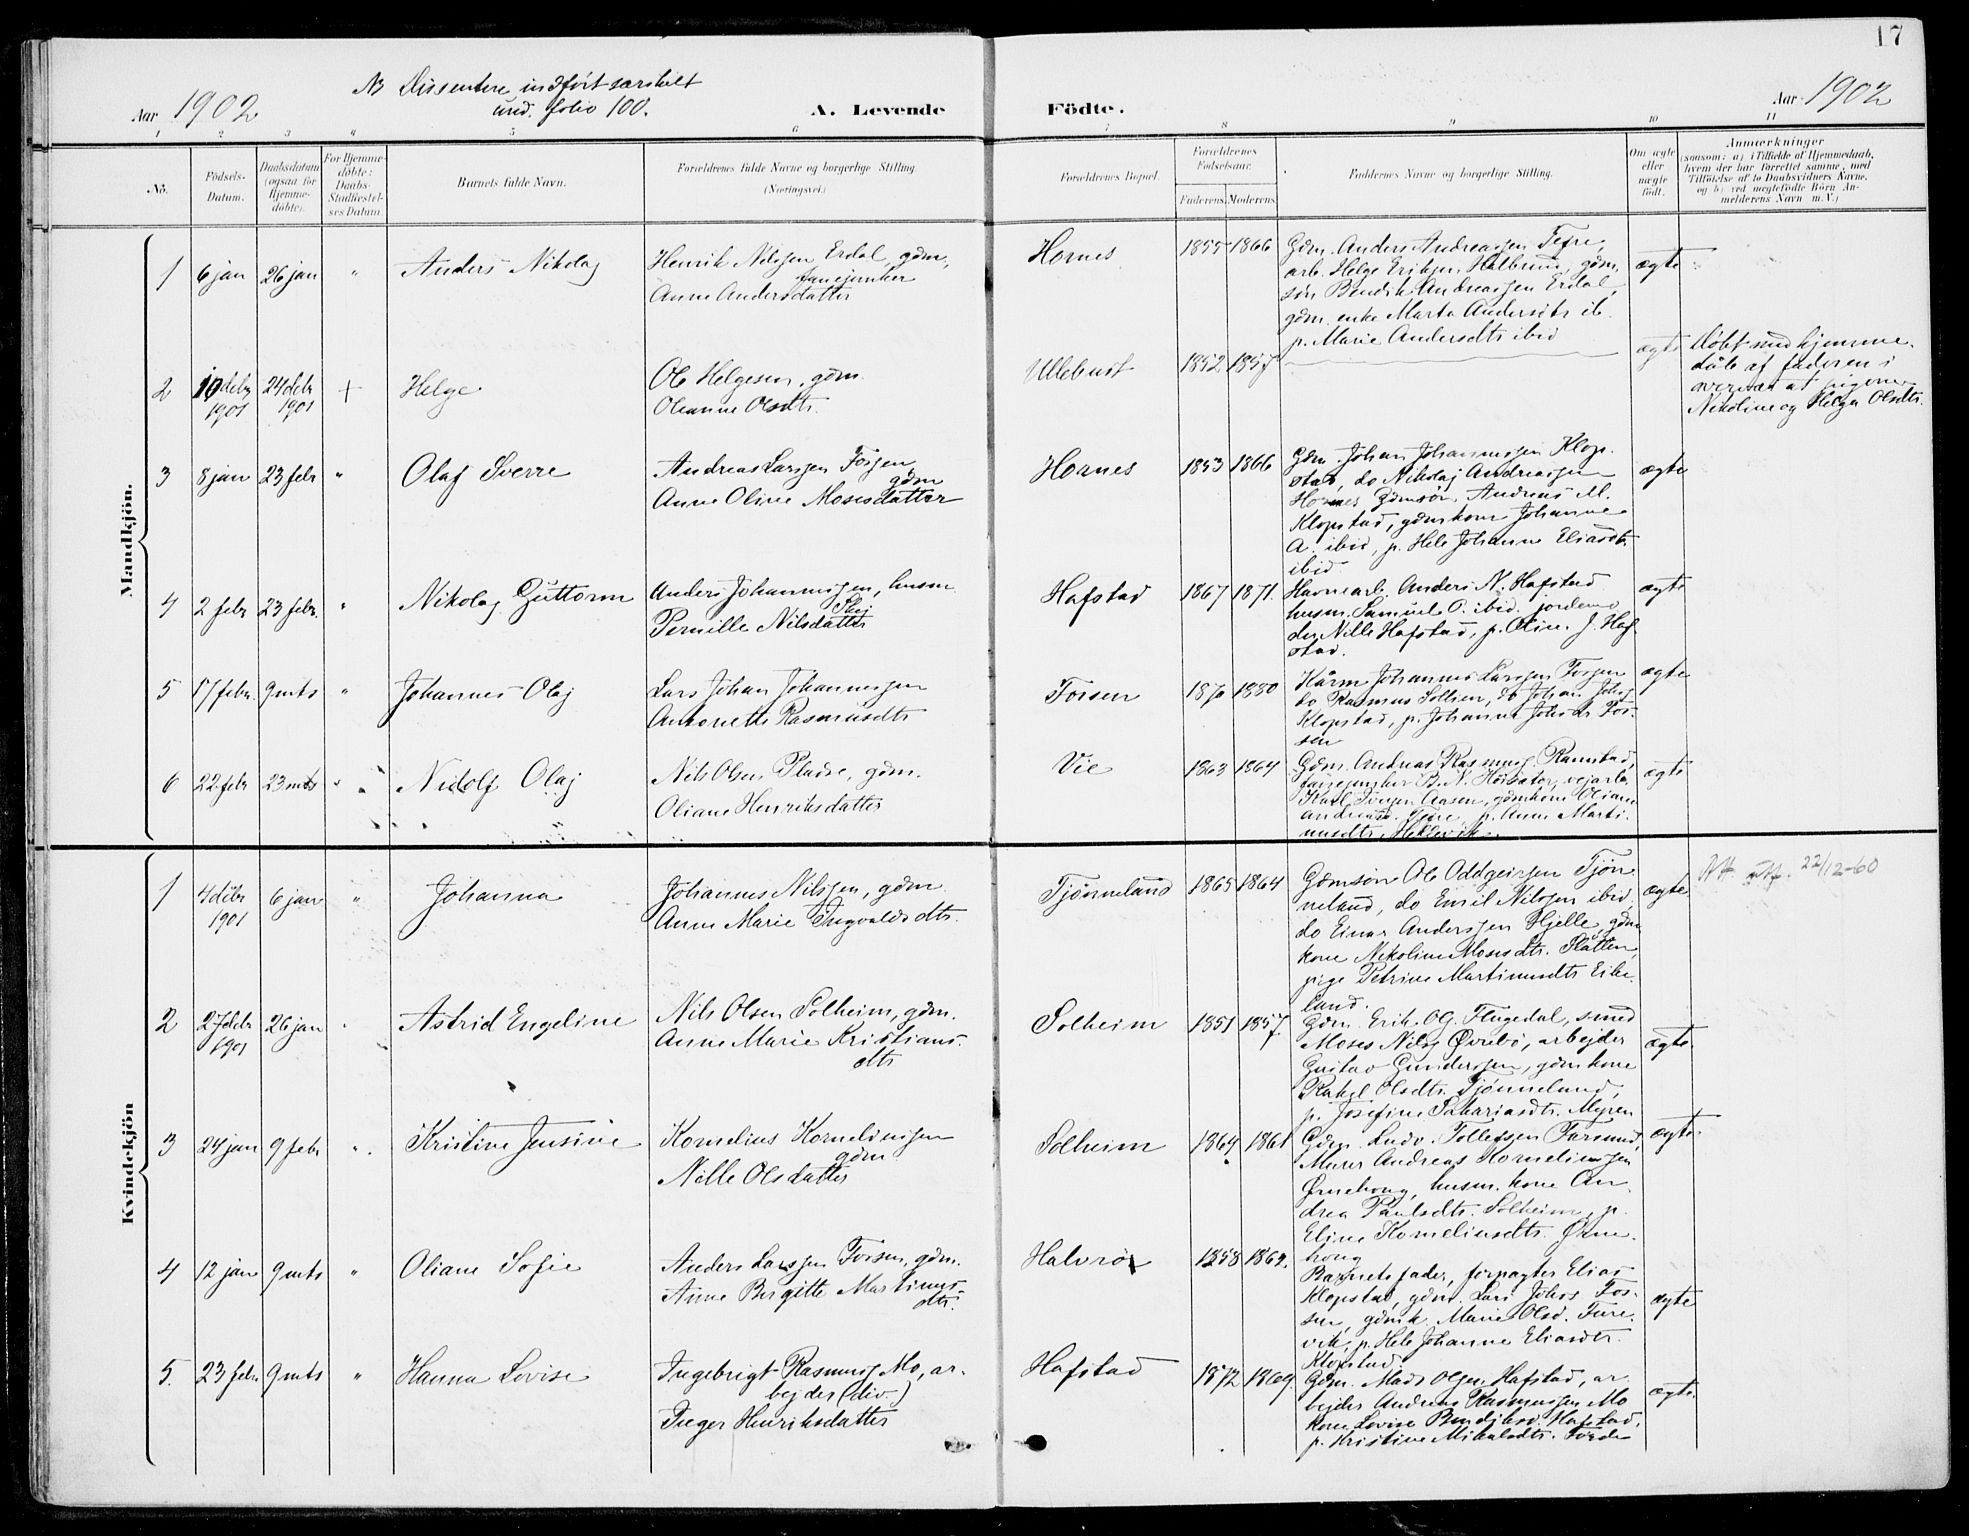 17
Aar 1902
NB Dissentere indført særskilt
und. folio 100.
A. Levende Födte.
Aar 1902
1 2 3 " 5 6 7 8 9 10 11
No.
Födsels-
Datum.
Daabsdatum
(ogsaa for
Hjemme-
döbte).
For Hjemme-
döbte:
Daabs-
Stadfæstel-
ses Datum.
Barnets fulde Navn.
Forældrenes fulde Navne og borgerlige Stilling
(Næringsvei.)
Forældrenes Bopæl.
Forældrenes
Födselsaar.
Faderens. Moderens.
Faddernes Navne og borgerlige Stilling.
Om ægte
eller
uægte
födt.
Anmærkninger
(saasom: a) i Tilfælde af Hjemmedaab,
hvem der har forrettet samme, med
Tilföielse af to Daabsvidners Navne,
og b) ved uægtefödte Börn An-
melderens Navn m. V.)
Mandkjön.
1 6 jan 26 jan " Anders Nikolaj
Henrik Nilssen Erdal, gdm,
Anne Andersdatter
Hornes 1855 1866
Gdm. Anders Andreassen Tefre,
arb. Helge Eriksen Halbrend, gdm.
søn Bendik Andreassen Erdal,
gdm. enke Marta Andersdts ib.
p. Marie Andersdts ibid
ægte
2 10 debr 1901 24 debr 1901 + Helge
Ole Helgesen, gdm.
Oleanne Olsdts.
Ullebust 1852 1857
ægte
Døbt med hjemme-
dåb af faderen i
overvær at pigerne
Nikoline og Helga Olsdts.
3 8 jan 23 febr " Olaf Sverre
Andreas Larssen Fossen
gdm
Anne Oline Mosesdatter
Hornes 1853 1866
Gdm. Johan Johannessen Klop-
stad, do Nikolaj Andreassen
Hornes Gdmsøn, Andreas M.
Klopstad, gdmskone Johanne
A. ibid, p. Hele Johanne Eliasdtr.
ibid.
ægte
4 2 febr 23 febr. " Nikolaj Guttorm
Anders Johannessen, husm
Pernille Nilsdatter
Hafstad 1867 1871.
Havnearb. Anders N. Hafstad
husm. Samuel O. ibid. jordemo
der Nille Hafstad, p. Oline J. Haf-
stad.
ægte
5 17 febr. 9 mts " Johannes Olaj
Lars Johan Johannessen
Antonette Rasmusdts
Fossen 1870 1880
Kårm Johannes Larssen Fossen
do Rasmus Solhein, do Johan Johs
Klopstad, p. Johanna Johsdts Fos-
sen
ægte
6 22 febr 23 mts " Nidolf Olaj
Nils Olsen Pladse, gdm.
Oliane Henriksdatter
Vie 1863 1864
Gdm. Andreas Rasmuss Ramstad,
fanejunker B. N. vejarb.
Karl Iversen Aasen, gdmkone Oliane
Andreasd. Tefre, p. Anne Marti-
nusdts Heklevik.
ægte
Kvindekjön
1 4 debr 1901 6 jan " Johanna
Johannes Nilssen, gdm.
Anne Marie Ingvaldsdts.
Tjønneland 1865 1864
Gdmsøn Ole Oddgeirsen Tjøn
neland, do Emil Nilssen ibid,
do Einar Anderssen Hjelle, gdm
kone Nikoline Mosesdts. Slåtten,
pige Petrine Martinusdts Eike-
land.
ægte
Att. utf. 22/12-60
2 27 debr 1901 26 jan " Astrid Engeline
Nils Olsen Solheim, gdm.
Anne Marie Kristians-
dts
Solheim 1851 1857.
Gdm. Erik OG. Flugedal, smed
Moses Nilss Øvrebø, arbejder
Gustav Gunderssen, gdmskone
Rakel Olsdts. Tjønneland,
p. Josefine Sakariasdts. Myren
ægte.
3 24 jan 9 febr " Kristine Jensine
Kornelius Korneliussen
gdm
Nille Olsdatter
Solheim 1864 1861
Gdm. Ludv. Tollefsen Farsund,
Murer Andreas Korneliussen
Ørnehaug, husm. kone An-
drea Paulsdts. Solheim, p.
Eline Korneliusdts. Ørne-
haug
ægte.
4 12 jan 9 mts " Oliane Sofie
Anders Larssen Fossen, gdm.
Anne Birgitte Martinus-
dts.
Halvrø 1858 1862.
Barnets fader, forpagter Elias
Klopstad, gdm. Lars Johs Fos-
sen, gdmk. Marie Olsd. Fure-
vik, p. Hele Johanne Eliasdts.
Klopstad.
ægte
5. 23 febr 9 mts " Hanna Lovise
Ingebrigt Rasmuss Mo, ar-
bejder (div.)
Inger Henriksdatter
Hafstad 1872 1869.
Gdm. Mads Olsen Hafstad, ar-
bejder Andreas Rasmussen Mo
kone Lovise Bendiksd. Hafstad,
p. Kristine Mikalsdts. Førde
ægte.